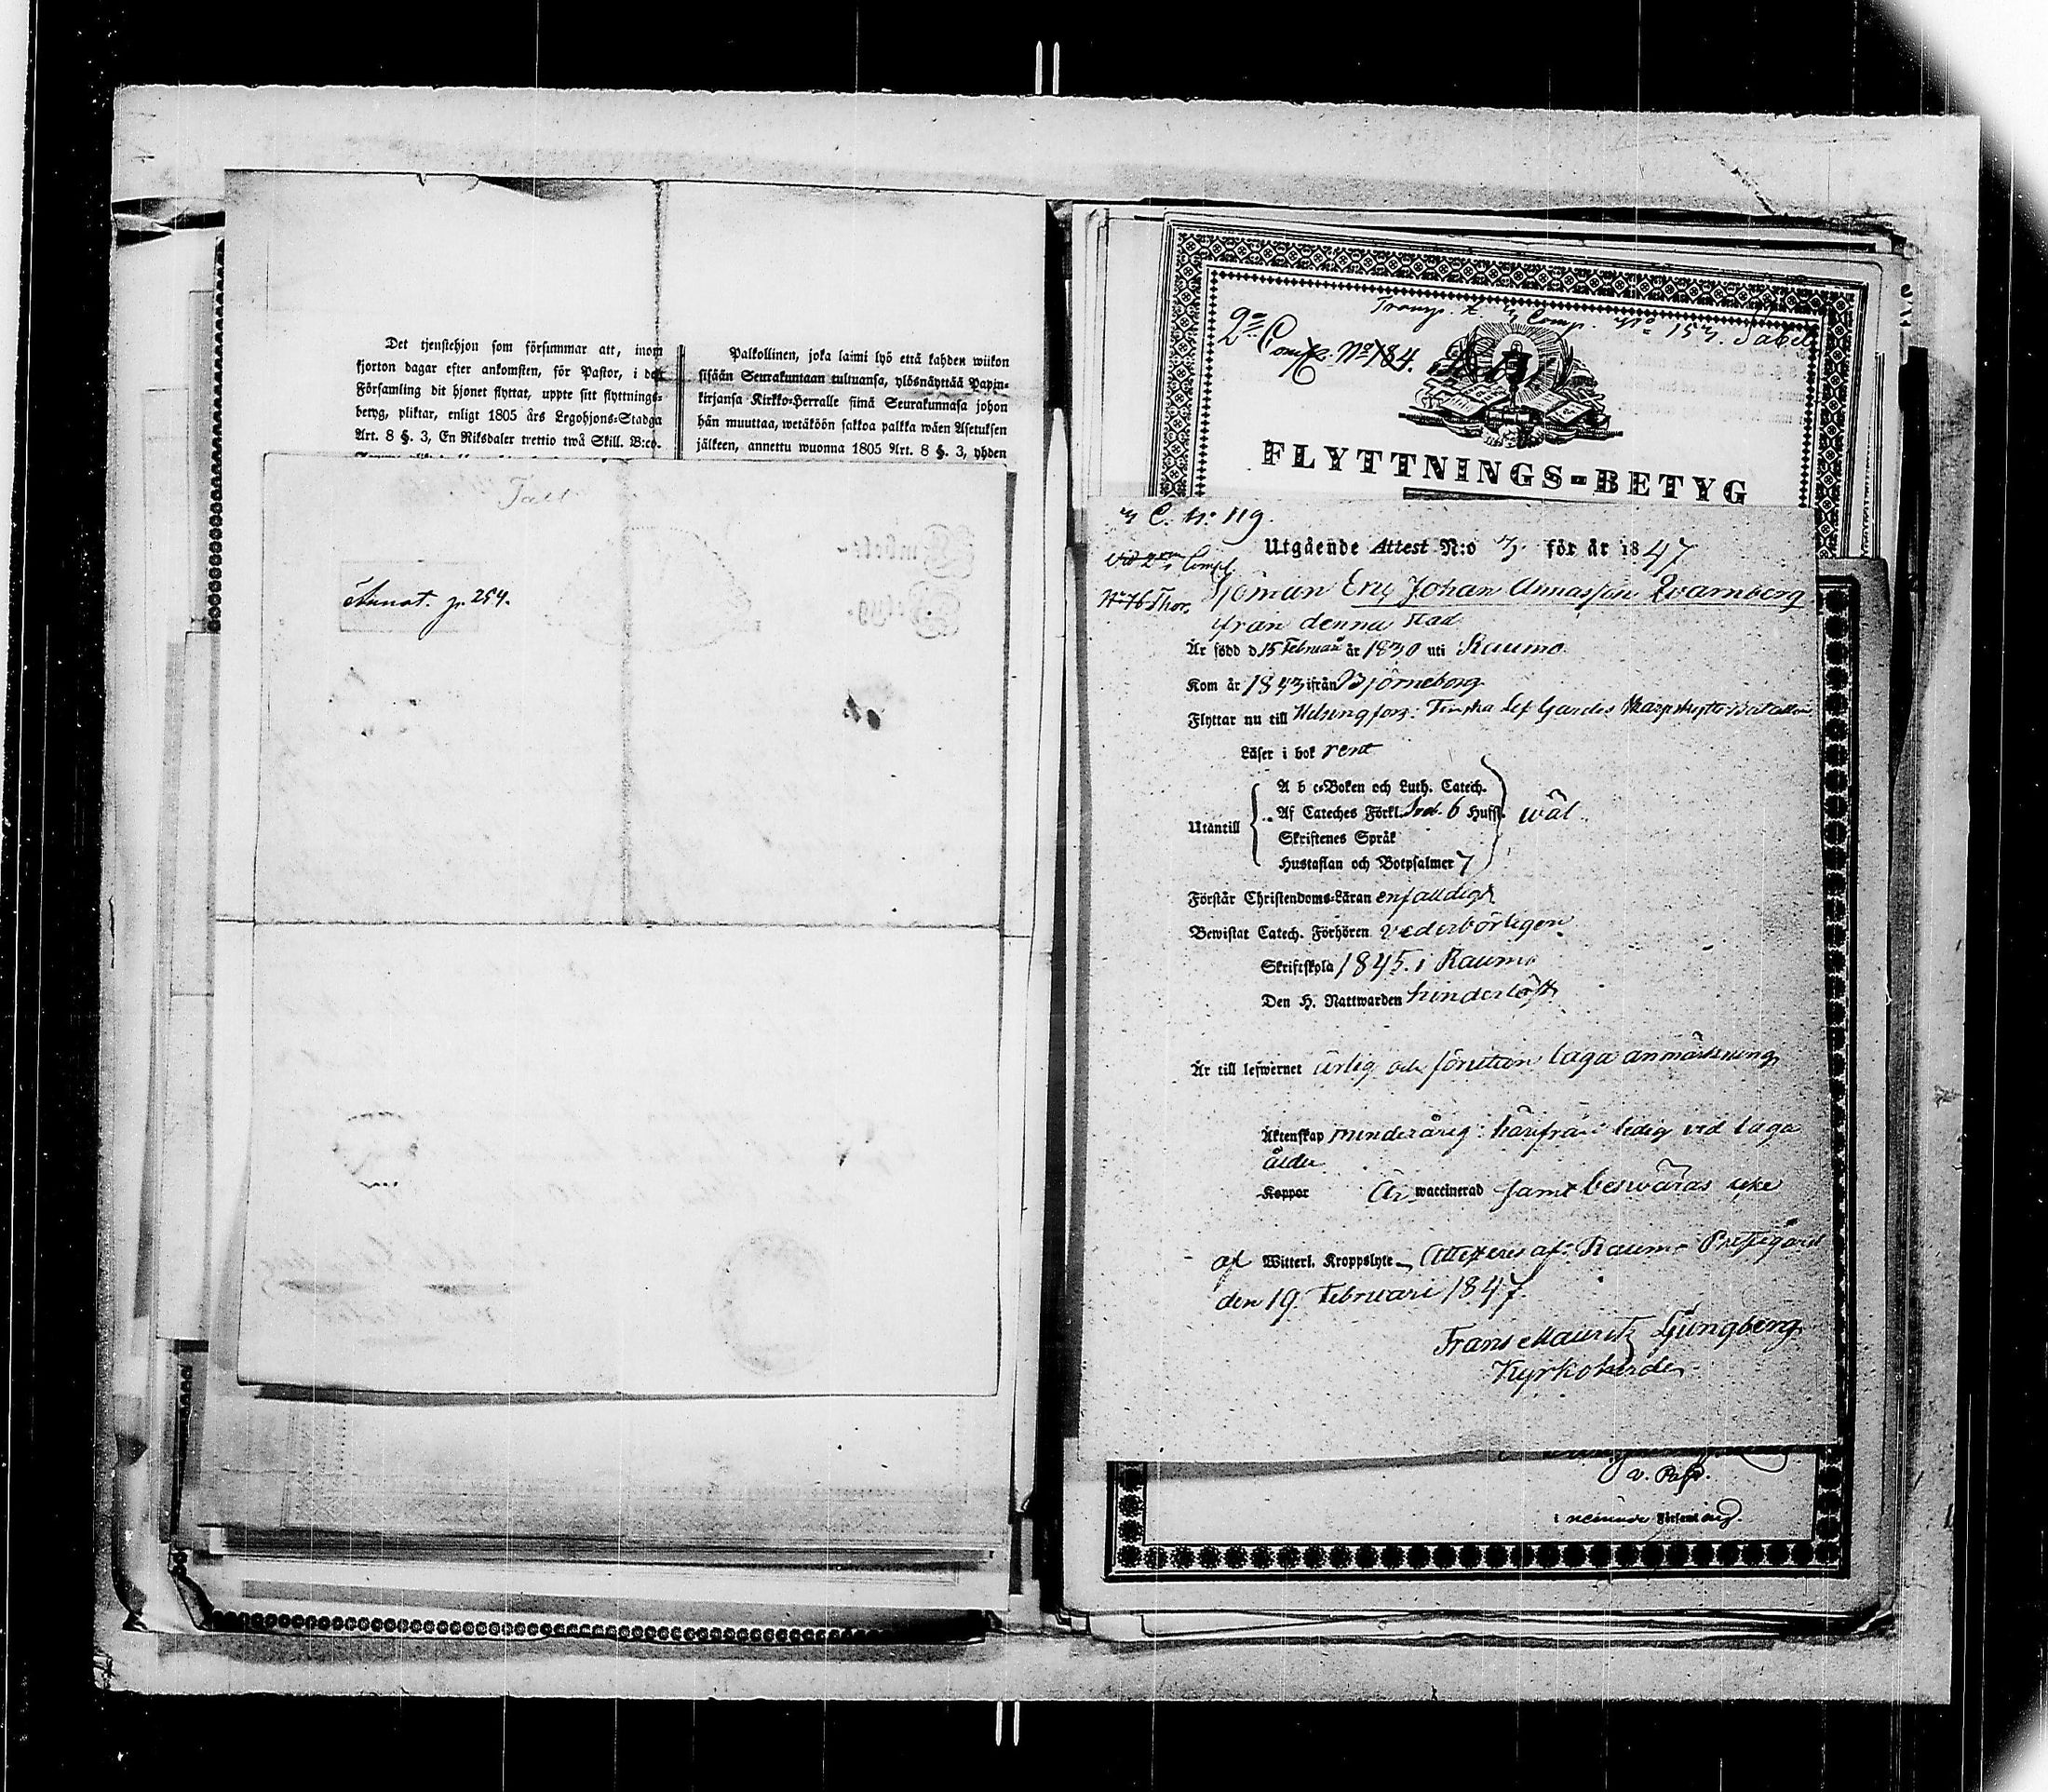 Det tjenstehjon som försummar att, inom
fjorton dagar efter ankomsten, för Pastor, i den
Församling dit hjonet flyttat, uppte sitt flyttnings-
betyg, pliktar, enligt 1805 års Legohjons-Stadga
Art. 8 §. 3, En Riksdaler trettio twå Skill. B:co.
Palkollinen, joka laimi lyö että kahden wiikon
sisään Seurakuntaan tultuansa, ylösnäyttää Papin-
kirjansa Kirkko-Herralle siinä Seurakunnasa johon
hän muuttaa, wetäköön sakkoa palkka wäen Asetuksen
jälkeen, annettu wuonna 1805 Art. 8 §. 3, yhden
Annot. p. 254.
Comp. No 153. Sabel
2=
Comp. No 184.
FLYTTNINGS-BETYG
3 C. Nr 119.
Utgående Attest N:o 3. för år 1847
Vid 2en Comp.
No 76 Thor.
Sjöman Eric Johan Annasson Qvarnberg
från denna stad
Är född d 15 Februari år 1830 uti Raumo
Kom år 1843 ifrån Björneborg
Flyttar nu till Helsingfors: Finska Lif Gardes Skarpskytte Bataillon
Läser i bok rent
A b c-Boken och Luth. Catech.
Utantill Af Cateches Förkl. 6 Hufst. wäl
Skriftenes Språk
Hustaflan och Botpsalmer 7
Förstår Christendoms-Läran enfaldigt
Bewistat Catech. Förhören vederbörligen
Skriftskola 1845. i Raumo
Den H. Nattwarden hinderlöst
Är till lefwernet ärlig och förutan laga anmärkning
Äktenskap minderårig: härifrån ledig vid laga
ålder
Koppor Är waccinerad samt beswäras icke
af Witterl. Kroppslyte Attesteras af: Raumo Prestgård
den 19. Februari 1847.
Frans Mauritz Ljungberg
Kyrkoherde
v. Past.
i nämnde Församling.